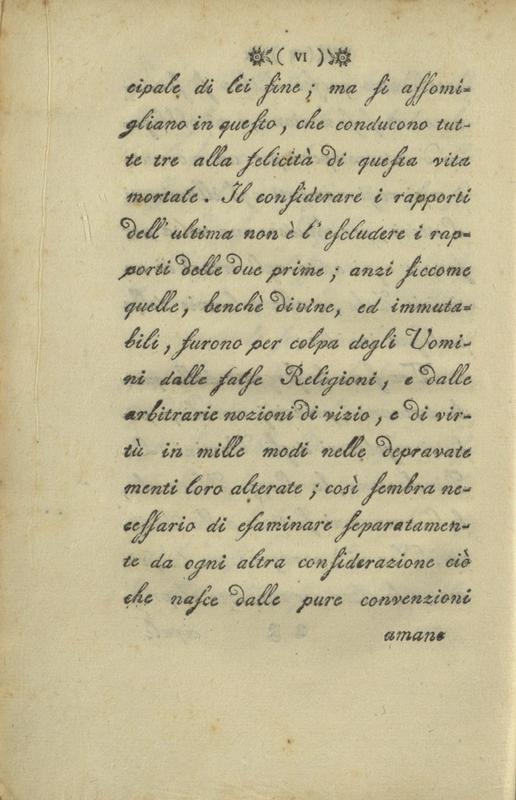 ( VI )
cipale di lei fine ; ma ſi aſſomi=
gliano in queſto , che conducono tut-
te tre alla felicità di queſta vita
mortale . Il conſiderare i rapporti
dell' ultima non è l' eſcludere i rap=
porti delle due prime ; anzi ſiccome
quelle , benchè divine , ed immuta=
bili , furono per colpa degli Uomi-
ni dalle falſe Religioni , e dalle
arbitrarie nozioni di vizio , e di vir-
tù in mille modi nelle depravate
menti loro alterate ; così ſembra ne-
ceſſario di eſaminare ſeparatamen-
te da ogni altra conſiderazione ciò
che naſce dalle pure convenzioni
umane